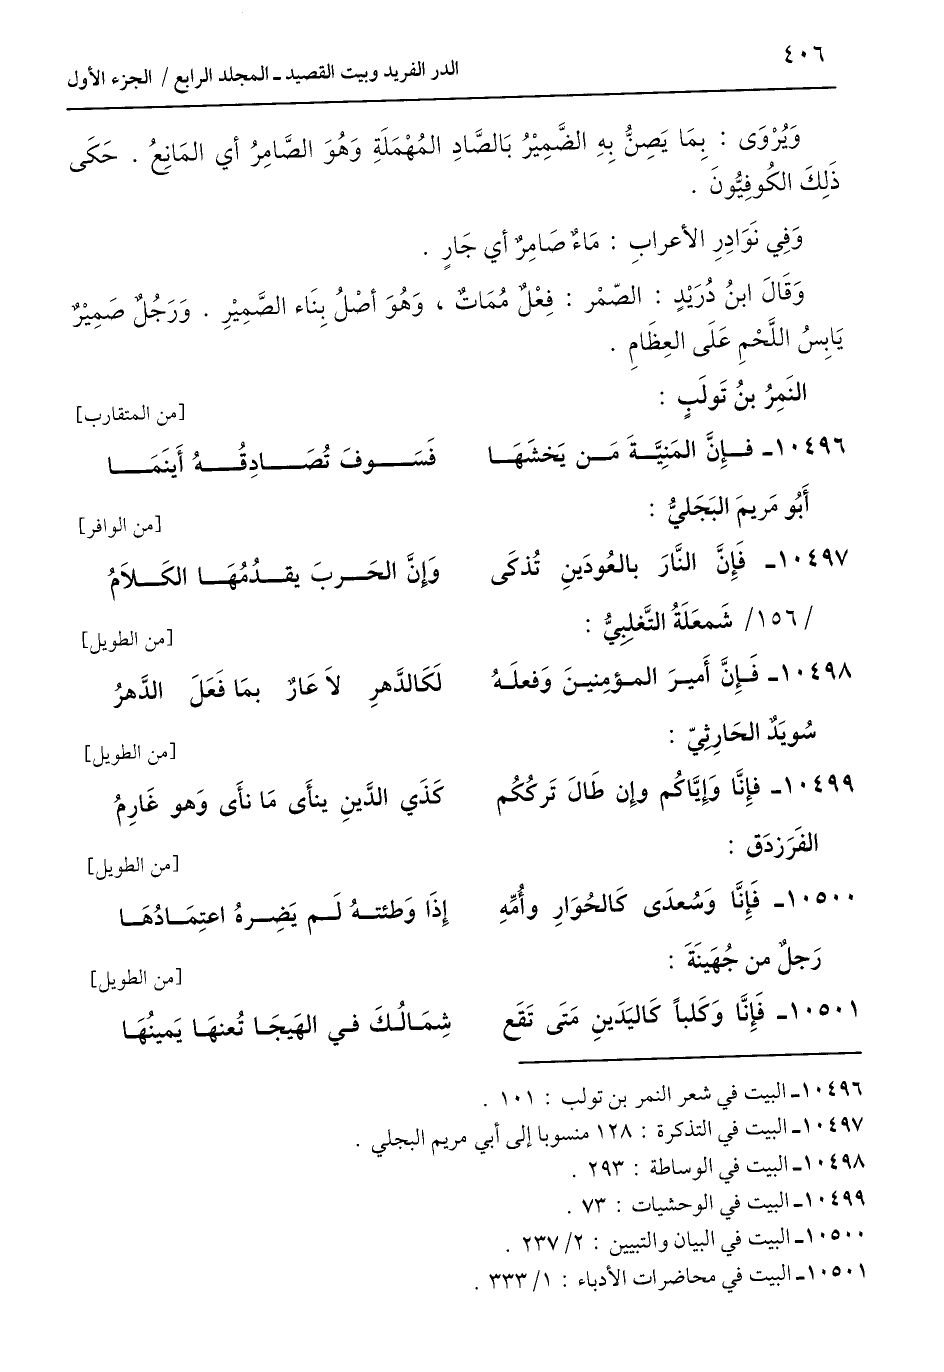 ٤٠٦
الدر الفريد وبيت القصيد ـ المجلد الرابع / الجزء الأول
وَيُرْوَى : بِمَا يَصِنُّ بِهِ الضَّمِيْرُ بَالصَّادِ المُهْمَلَةِ وَهُوَ الصَّامِرُ أي المَانِعُ . حَكَى
ذَلِكَ الكُوفِيُّونَ .
وَفِي نَوَادِرِ الأعرابِ : مَاءٌ صَامِرٌ أي جَارٍ .
وَقَالَ ابنُ دُرَيْدٍ : الصّمْر : فِعْلٌ مُمَاتٌ ، وَهُوَ أصْلُ بِنَاء الصَّمِيْرِ . وَرَجُلٌ صَمِيْرٌ
يَابِسُ اللَّحْمِ عَلَى العِظَامِ .
النَمِرُ بنُ تَولَبٍ : [من المتقارب]
١٠٤٩٦ـ فـإِنَّ المَنِيَّـةَ مَـن يَخشَهَـا فَسَـوفَ تُصَـادِقُـهُ أَينَمَـا
أَبُو مَريمَ البَجَليُّ : [من الوافر]
١٠٤٩٧ـ فَإِنَّ النَّارَ بالعُودَينِ تُذكَى وَإِنَّ الحَـربَ يقـدُمُهَـا الكَـلاَمُ
/ ١٥٦/ شَمعَلَةُ التَّغلِبِيُّ : [من الطويل]
١٠٤٩٨ـ فَـإِنَّ أَميرَ المـؤمِنيـنَ وَفعلَـهُ لَكَالدَّهرِ لاَ عَارٌ بمَا فَعَلَ الدَّهرُ
سُويَدٌ الحَارِثِيّ : [من الطويل]
١٠٤٩٩ـ فَإِنَّا وَإِيَّاكُم وإن طَالَ تَرككُم كَذَي الدَّينِ ينأَى مَا نأَى وَهو غَارِمُ
الفَرَزدَق : [من الطويل]
١٠٥٠٠ـ فَإِنَّا وَسُعدَى كَالحُوَارِ وأُمِّهِ إِذَا وَطئتـهُ لَـم يَضِـرهُ اعتِمَـادُهَـا
رَجلٌ من جُهَينَةَ : [من الطويل]
١٠٥٠١ـ فَإِنَّا وَكَلباً كَاليَدَينِ مَتَى تَقَع شِمَـالُـكَ فـي الهَيجَـا تُعنهَـا يَمينُهَـا
١٠٤٩٦ـ البيت في شعر النمر بن تولب : ١٠١ .
١٠٤٩٧ـ البيت في التذكرة : ١٢٨ منسوبا إلى أبي مريم البجلي .
١٠٤٩٨ـ البيت في الوساطة : ٢٩٣ .
١٠٤٩٩ـ البيت في الوحشيات : ٧٣ .
١٠٥٠٠ـ البيت في البيان والتبيين : ٢/ ٢٣٧ .
١٠٥٠١ـ البيت في محاضرات الأدباء : ١/ ٣٣٣ .